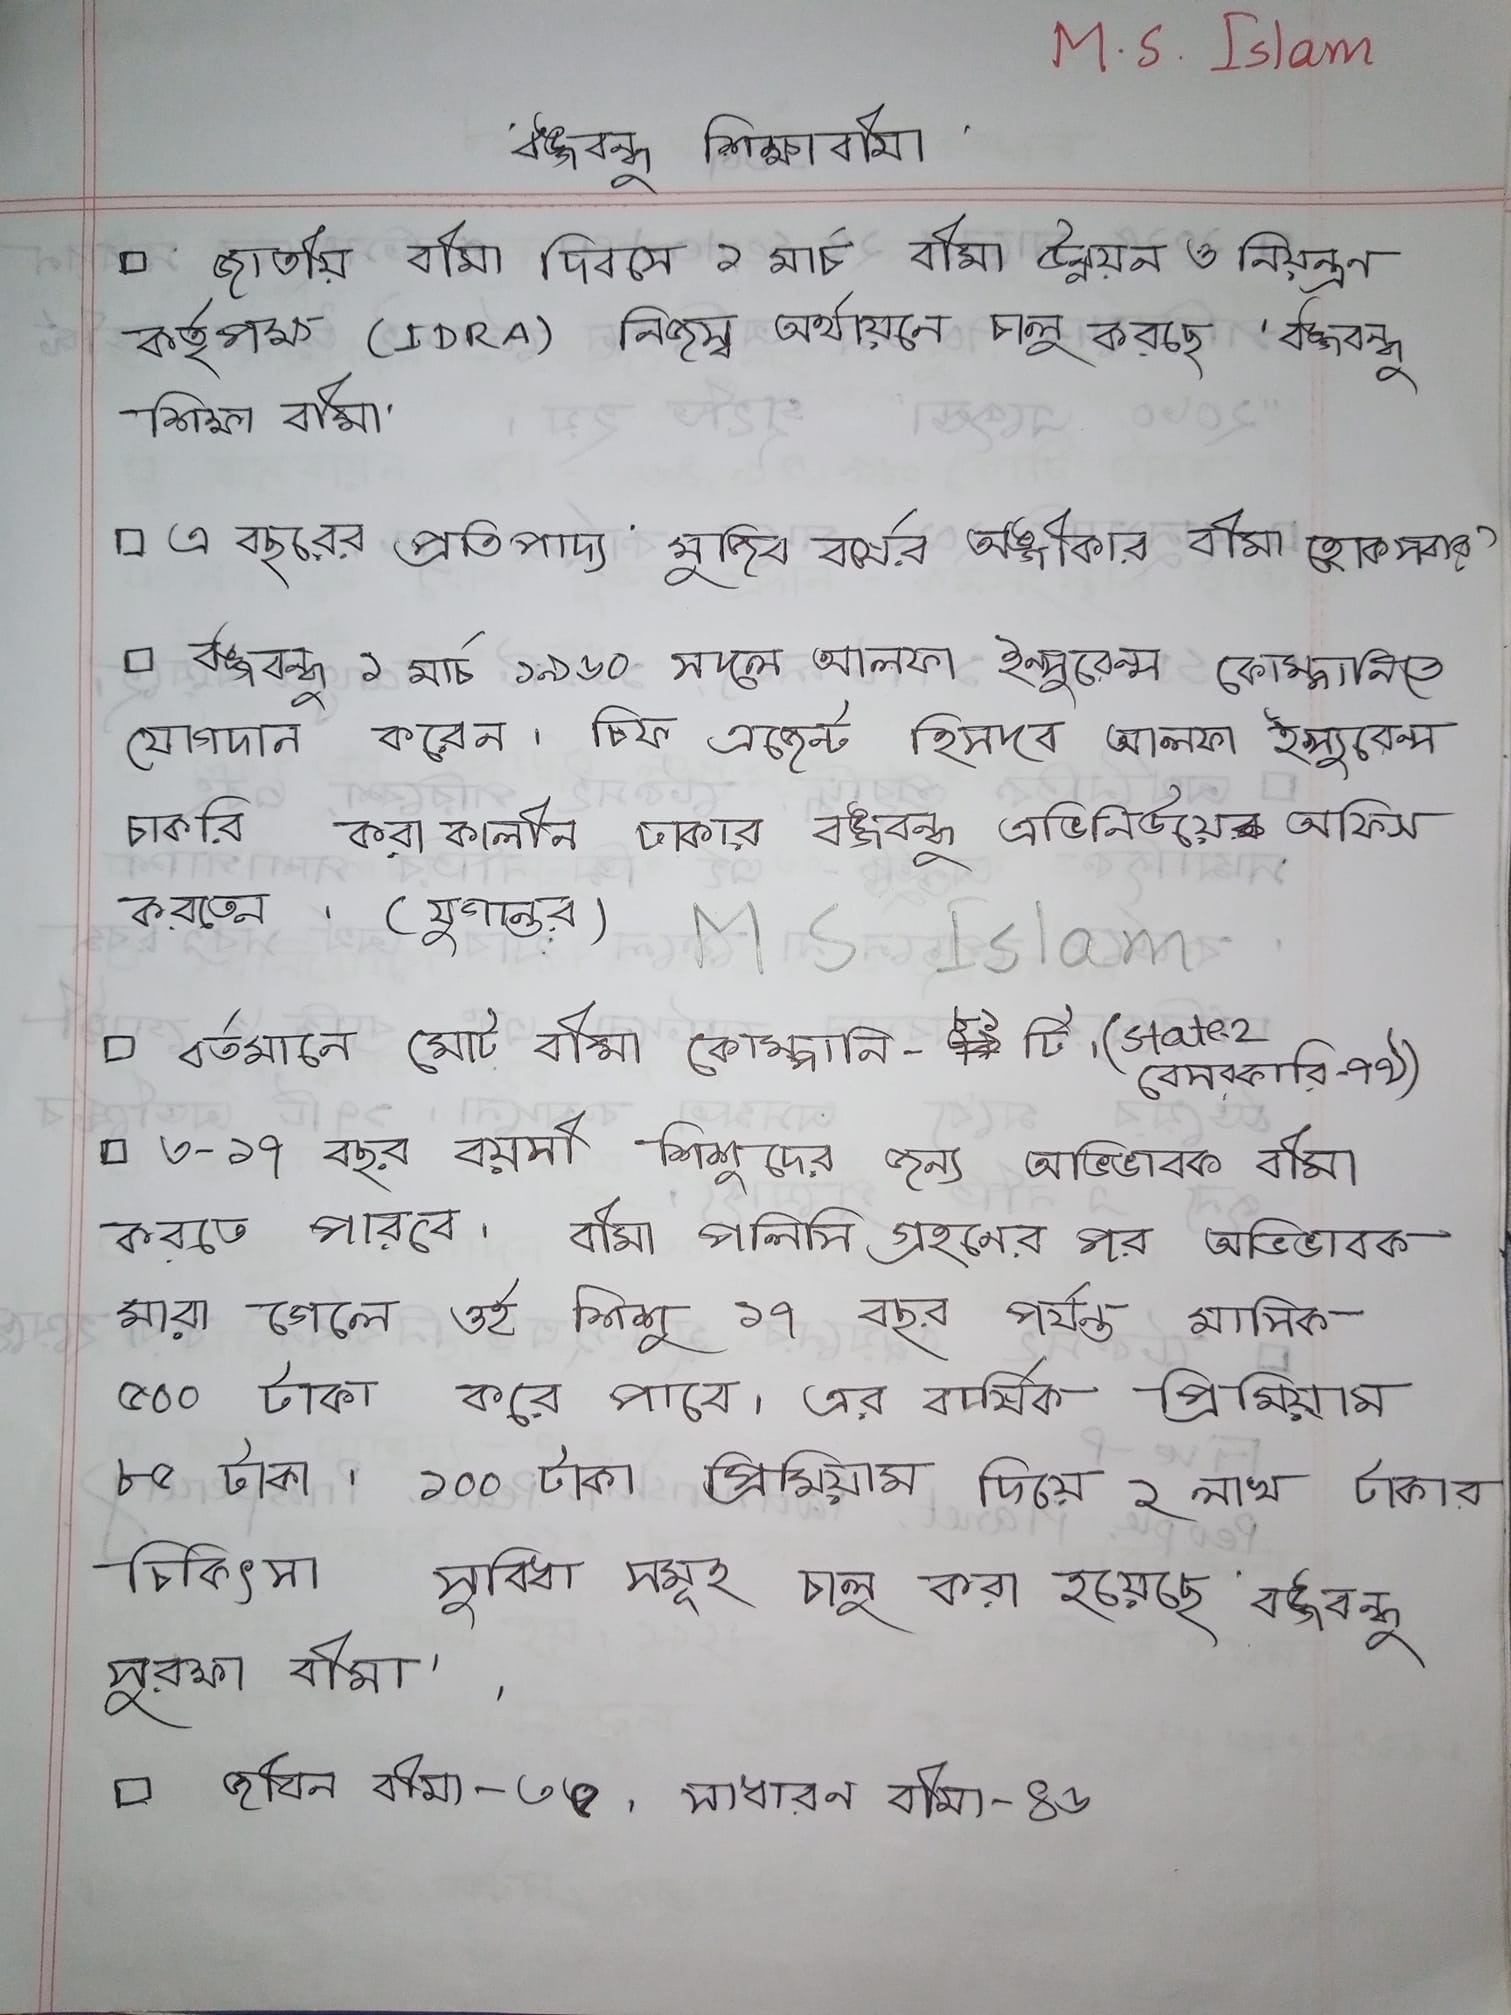 M.S. Islam
'বঙ্গবন্ধু শিক্ষাবীমা'
□ জাতীয় বীমা দিবসে ১ মার্চ বীমা উন্নয়ন ও নিয়ন্ত্রন
কর্তৃপক্ষ (IDRA) নিজস্ব অর্থায়নে চালু করছে 'বঙ্গবন্ধু
শিক্ষা বীমা'
□ এ বছরের প্রতিপাদ্য 'মুজিব বর্ষের অঙ্গীকার বীমা হোক সবার'
□ বঙ্গবন্ধু ১ মার্চ ১৯৬০ সালে আলফা ইন্সুরেন্স কোম্পানিতে
যোগদান করেন। চিফ এজেন্ট হিসাবে আলফা ইন্স্যুরেন্স
চাকরি করাকালীন ঢাকার বঙ্গবন্ধু এভিনিউয়ে অফিস
করতেন। (যুগান্তর)
M S Islam
□ বর্তমানে মোট বীমা কোম্পানি - টি। (state-2
বেসরকারি-৭৯)
□ ৩-১৭ বছর বয়সী শিশুদের জন্য অভিভাবক বীমা
করতে পারবে। বীমা পলিসি গ্রহনের পর অভিভাবক
মারা গেলে ওই শিশু ১৭ বছর পর্যন্ত মাসিক
৫০০ টাকা করে পাবে। এর বার্ষিক প্রিমিয়াম
৮৫ টাকা। ১০০ টাকা প্রিমিয়াম দিয়ে ২ লাখ টাকার
চিকিৎসা সুবিধা সমূহ চালু করা হয়েছে 'বঙ্গবন্ধু
সুরক্ষা বীমা'।
□ জীবন বীমা-৩৫, সাধারন বীমা-৪৬